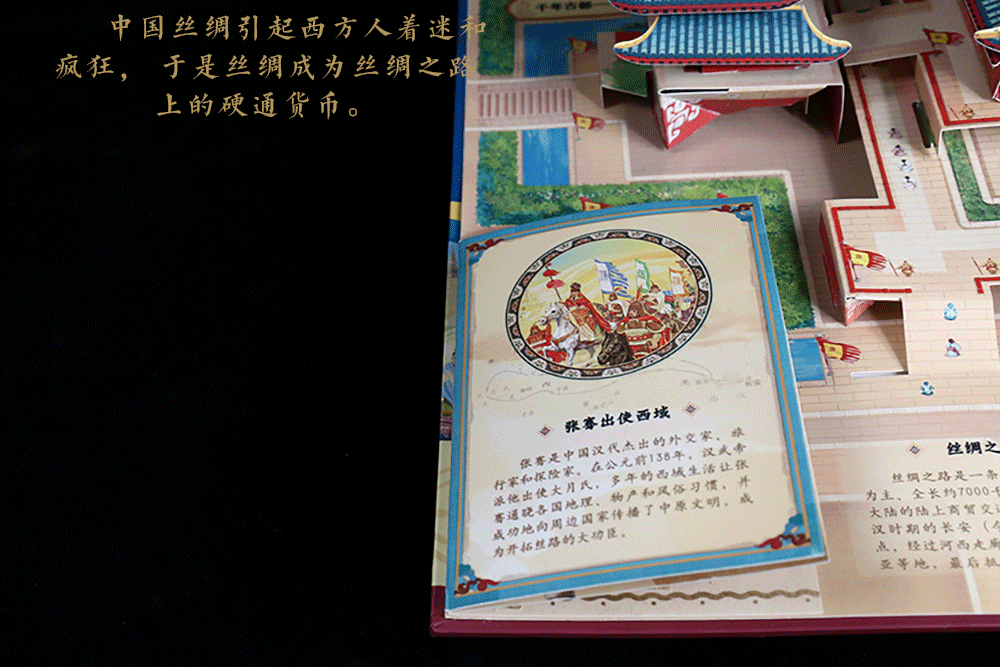 中国丝绸引起西方人着迷和
疯狂， 于是丝绸成为丝绸之路
上的硬通货币。
千年古都一
张骞出使西域
张骞是中国汉代杰出的外交家、旅
行家和探险家。在公元前138年，汉武帝
派他出使大月氏，多年的西域生活让张
骞通晓各国地理、物产和风俗习惯，并
成功地向周边国家传播了中原文明，成
为开拓丝路的大功臣。
丝绸之
丝绸之路是一条
为主、全长约7000千
大陆的陆上商贸交
汉时期的长安（
点，经过河西走廊
亚等地，最后抵